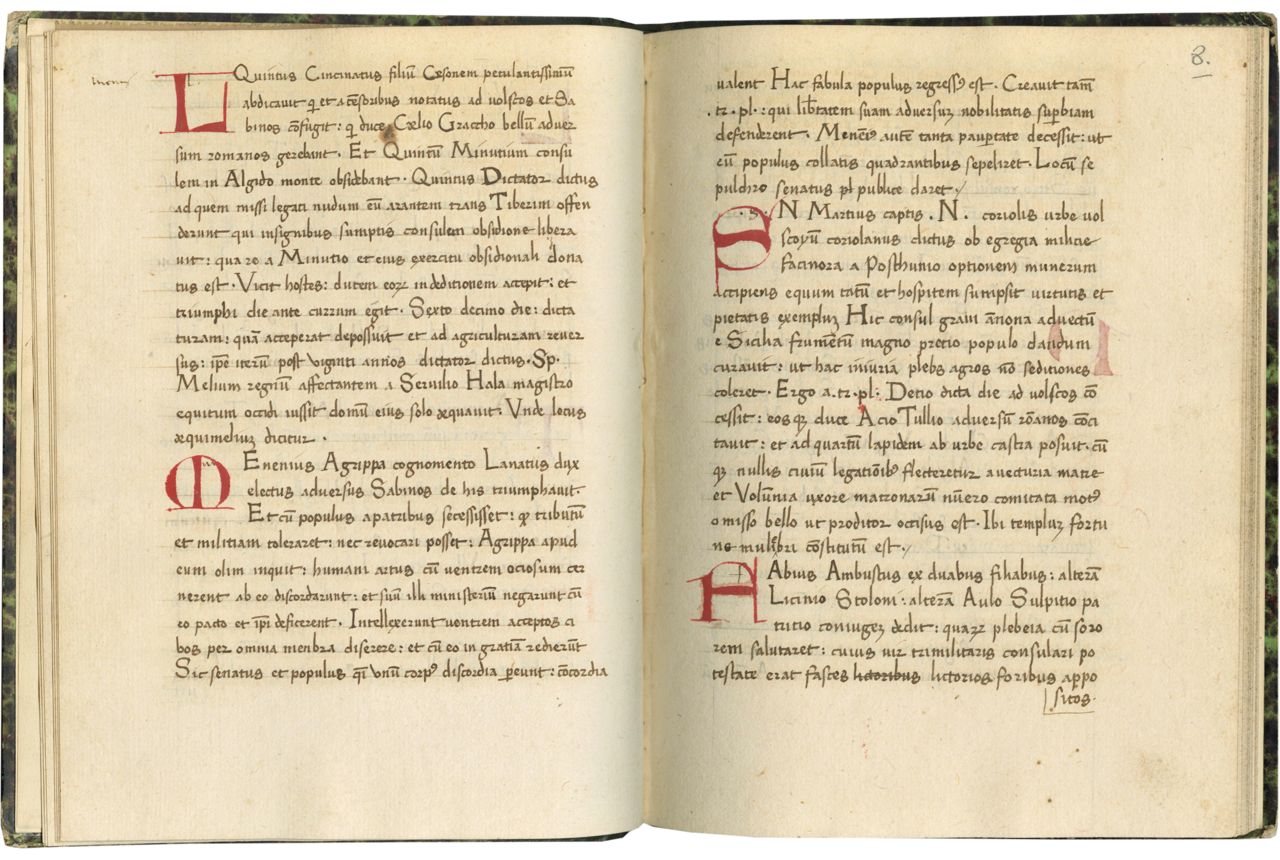 L Quintus Cincinatus filiū Cęsonem petulantissimū
abdicauit qi et a cēsoribus notatus ad volscos et Sa
binos cōfugit : qi duce Cœlio Graccho bellū aduer
sum romanos gerebant . Et Quintū Minutium consu
lem in Algido monte obsidebant . Quintus Dictator dictus
ad quem missi legati nudum eū arantem trans Tiberim offen
derunt qui insignibus sumptis consulem obsidione libera
uit : qua re a Minutio et eius exercitu obsidionali dona
tus est . Vicit hostes : ducem eoꝝ in deditionem accepit : et
triumphi die ante currum egit . Sexto decimo die : dicta
turam : quā acceperat depossuit et ad agriculturam reuer
sus : ip̄e iterū post viginti annos dictator dictus . Sp.
Melium regnū affectantem a Seruilio Hala magistro
equitum occidi iussit domū eius solo æquauit . Vnde locus
æquimeliuꝫ dicitur .
M ENENIUS Agrippa cognomento Lanatus dux
electus aduersus Sabinos de his triumphauit .
Et cū populus a patribus secessisset : qƺ tributū
et militiam toleraret : nec reuocari posset : Agrippa apud
eum olim inquit : humani artus cū ventrem ociosum cer
nerent ab eo discordarunt : et suū illi ministeriū negarunt cū
eo pacto et ip̄i deficerent . Intellexerunt ventrem acceptos ci
bos per omnia menbra diserere : et cū eo in gratiā redierūt
Sic senatus et populus qī vnū corpꝰ discordia p̲eunt : cōcordia
8.
valent Hac fabula populus regressꝰ est . Creauit tam̄
. tr . pl . : qui lib̄tatem suam aduersuꝫ nobilitatis sup̲biam
defenderent . Meneꝰ aut̄e tanta paup̲tate decessit : ut
eū populus collatis quadrantibus sepeliret . Locū se
pulchro senatus pl publice daret /
S . s . N Martius captis . N . coriolis urbe vol
scoꝝū coriolanus dictus ob egregia milicie
facinora a Posthunio optionem munerum
accipiens equum tatū et hospitem sumpsit virtutis et
pietatis exempluꝫ Hic consul graui ānona aduectū
e Sicilia frumētū magno precio populo dandum
curauit : ut hac iniuria plebs agros nō seditiones
coleret . Ergo a . tr . pl : Detio dicta die ad volscos cō
cessit : eosqꝫ duce Acio Tullio aduersū rōanos cōci
tauit : et ad quartū lapidem ab vrbe castra posuit . cū
qꝫ nullis ciuiū legationibꝰ flecteretur a vecturia matre
et Volūnia vxore matronarū nūero comitata motꝰ
omisso bello ut proditor occisus est . Ibi templuꝫ fortu
ne mulibri cōstitutū est /
F Abius Ambustus ex duabus filiabus : alterā
Licinio Stoloni : alterā Aulo Sulpitio pa
tritio coniugeꝫ dedit : quaꝝ plebeia cū soro
rem salutaret : cuius vir tri militaris consulari po
testate erat fasces lictoribus lictorios foribus appo
sitos .